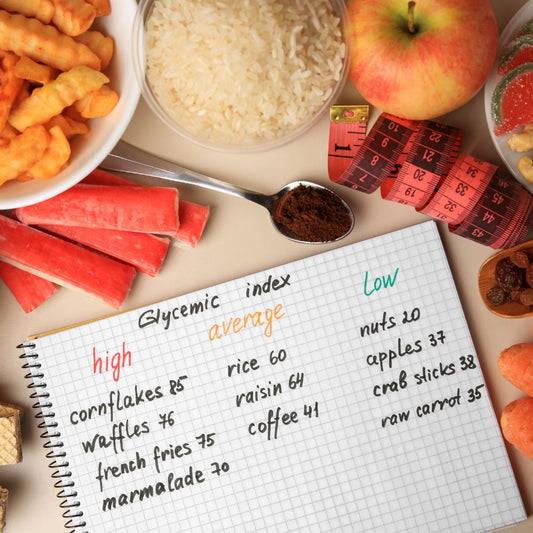 Glycemic index
high
cornflakes 85
waffles 76
french fries 75
marmalade 70
average
rice 60
raisin 64
coffee 41
Low
nuts 20
apples 37
crab sticks 38
raw carrot 35
1
7
8
9
10
20
21
22
32
33
34
43
44
45